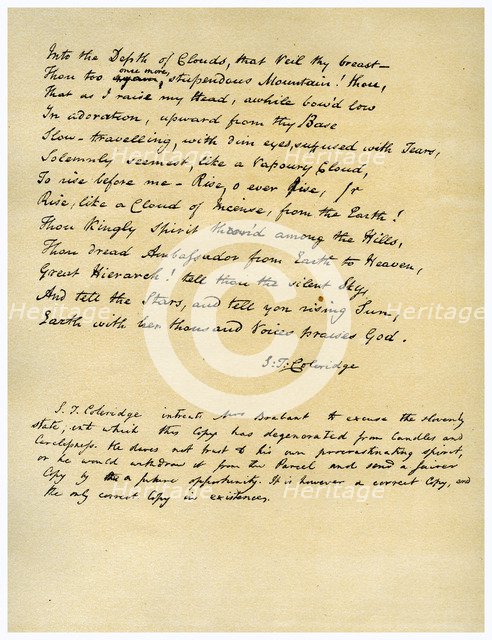 Into the Depth of Clouds, that Veil thy breast—
Thou too again once more, stupendous Mountain! thou,
That as I raise my Head, awhile bow'd low
In adoration, upward from thy Base
Slow-travelling, with dim eyes, suffused with Tears,
Solemnly seemest, like a Vapoury Cloud,
To rise before me — Rise, O ever Rise,
Rise, like a Cloud of Incense, from the Earth!
Thou Kingly Spirit thron'd among the Hills,
Thou dread Ambassador from Earth to Heaven,
Great Hierarch! tell thou the silent Sky,
And tell the Stars, and tell yon rising Sun,
Earth with her thousand Voices praises God.
S. T. Coleridge
S. T. Coleridge intreats Mrs Brabant to excuse the slovenly
state, into which this Copy has degenerated from Candles and
Carelessness. He dares not trust to his own procrastinating spirit,
or he would withdraw it from the Parcel and send a fairer
Copy by a future opportunity. It is however a correct Copy, and
the only correct Copy in existence.
Heritage Heritage
Heritage Heritage
Heritage Heritage